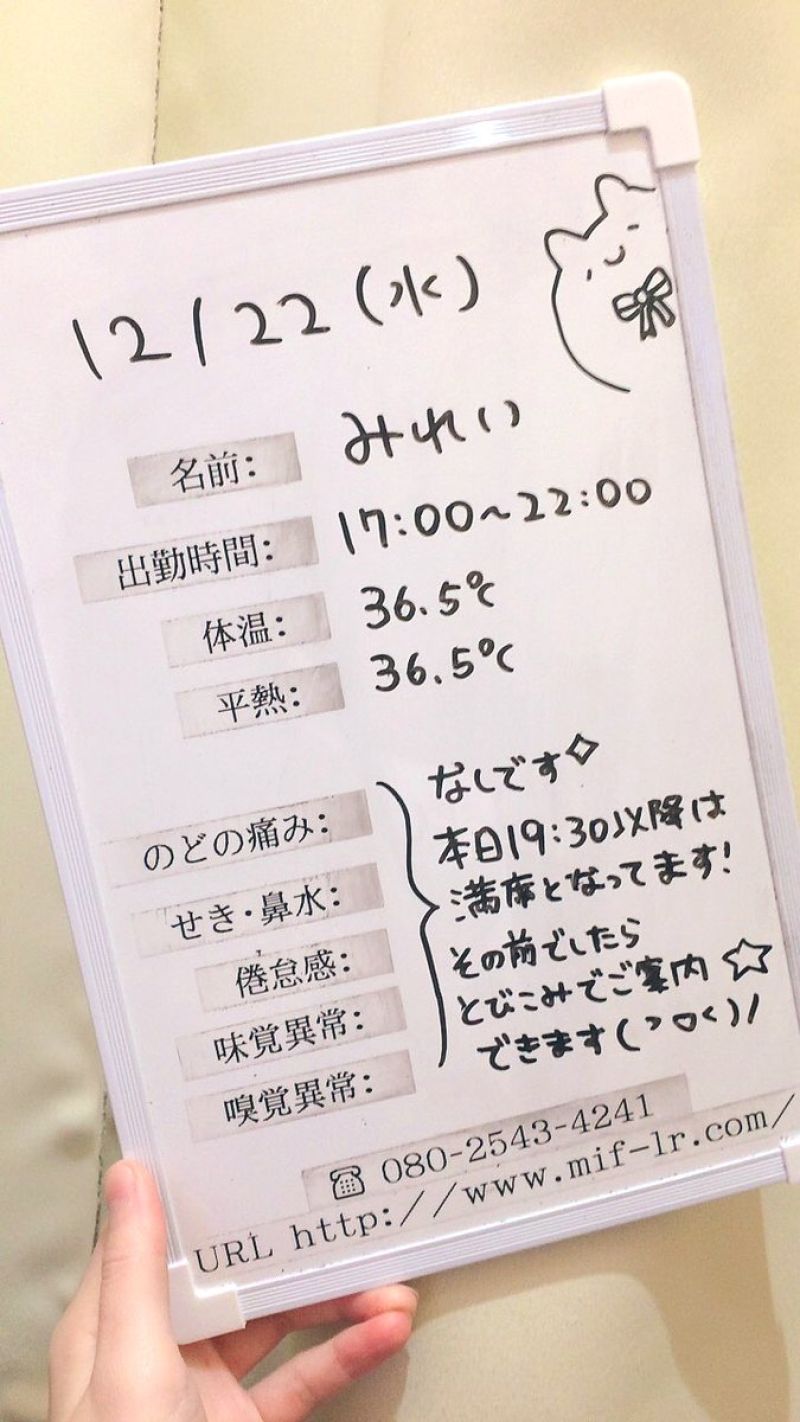 12/22(水)
名前: みれい
出勤時間: 17:00~22:00
体温: 36.5℃
平熱: 36.5℃
のどの痛み:
せき・鼻水:
倦怠感:
味覚異常:
嗅覚異常:
なしです◇
本日19:30以降は
満席となってます!
その前でしたら
とびこみでご案内☆
できます(>▽<)/
☎ 080-2543-4241
URL http://www.mif-lr.com/